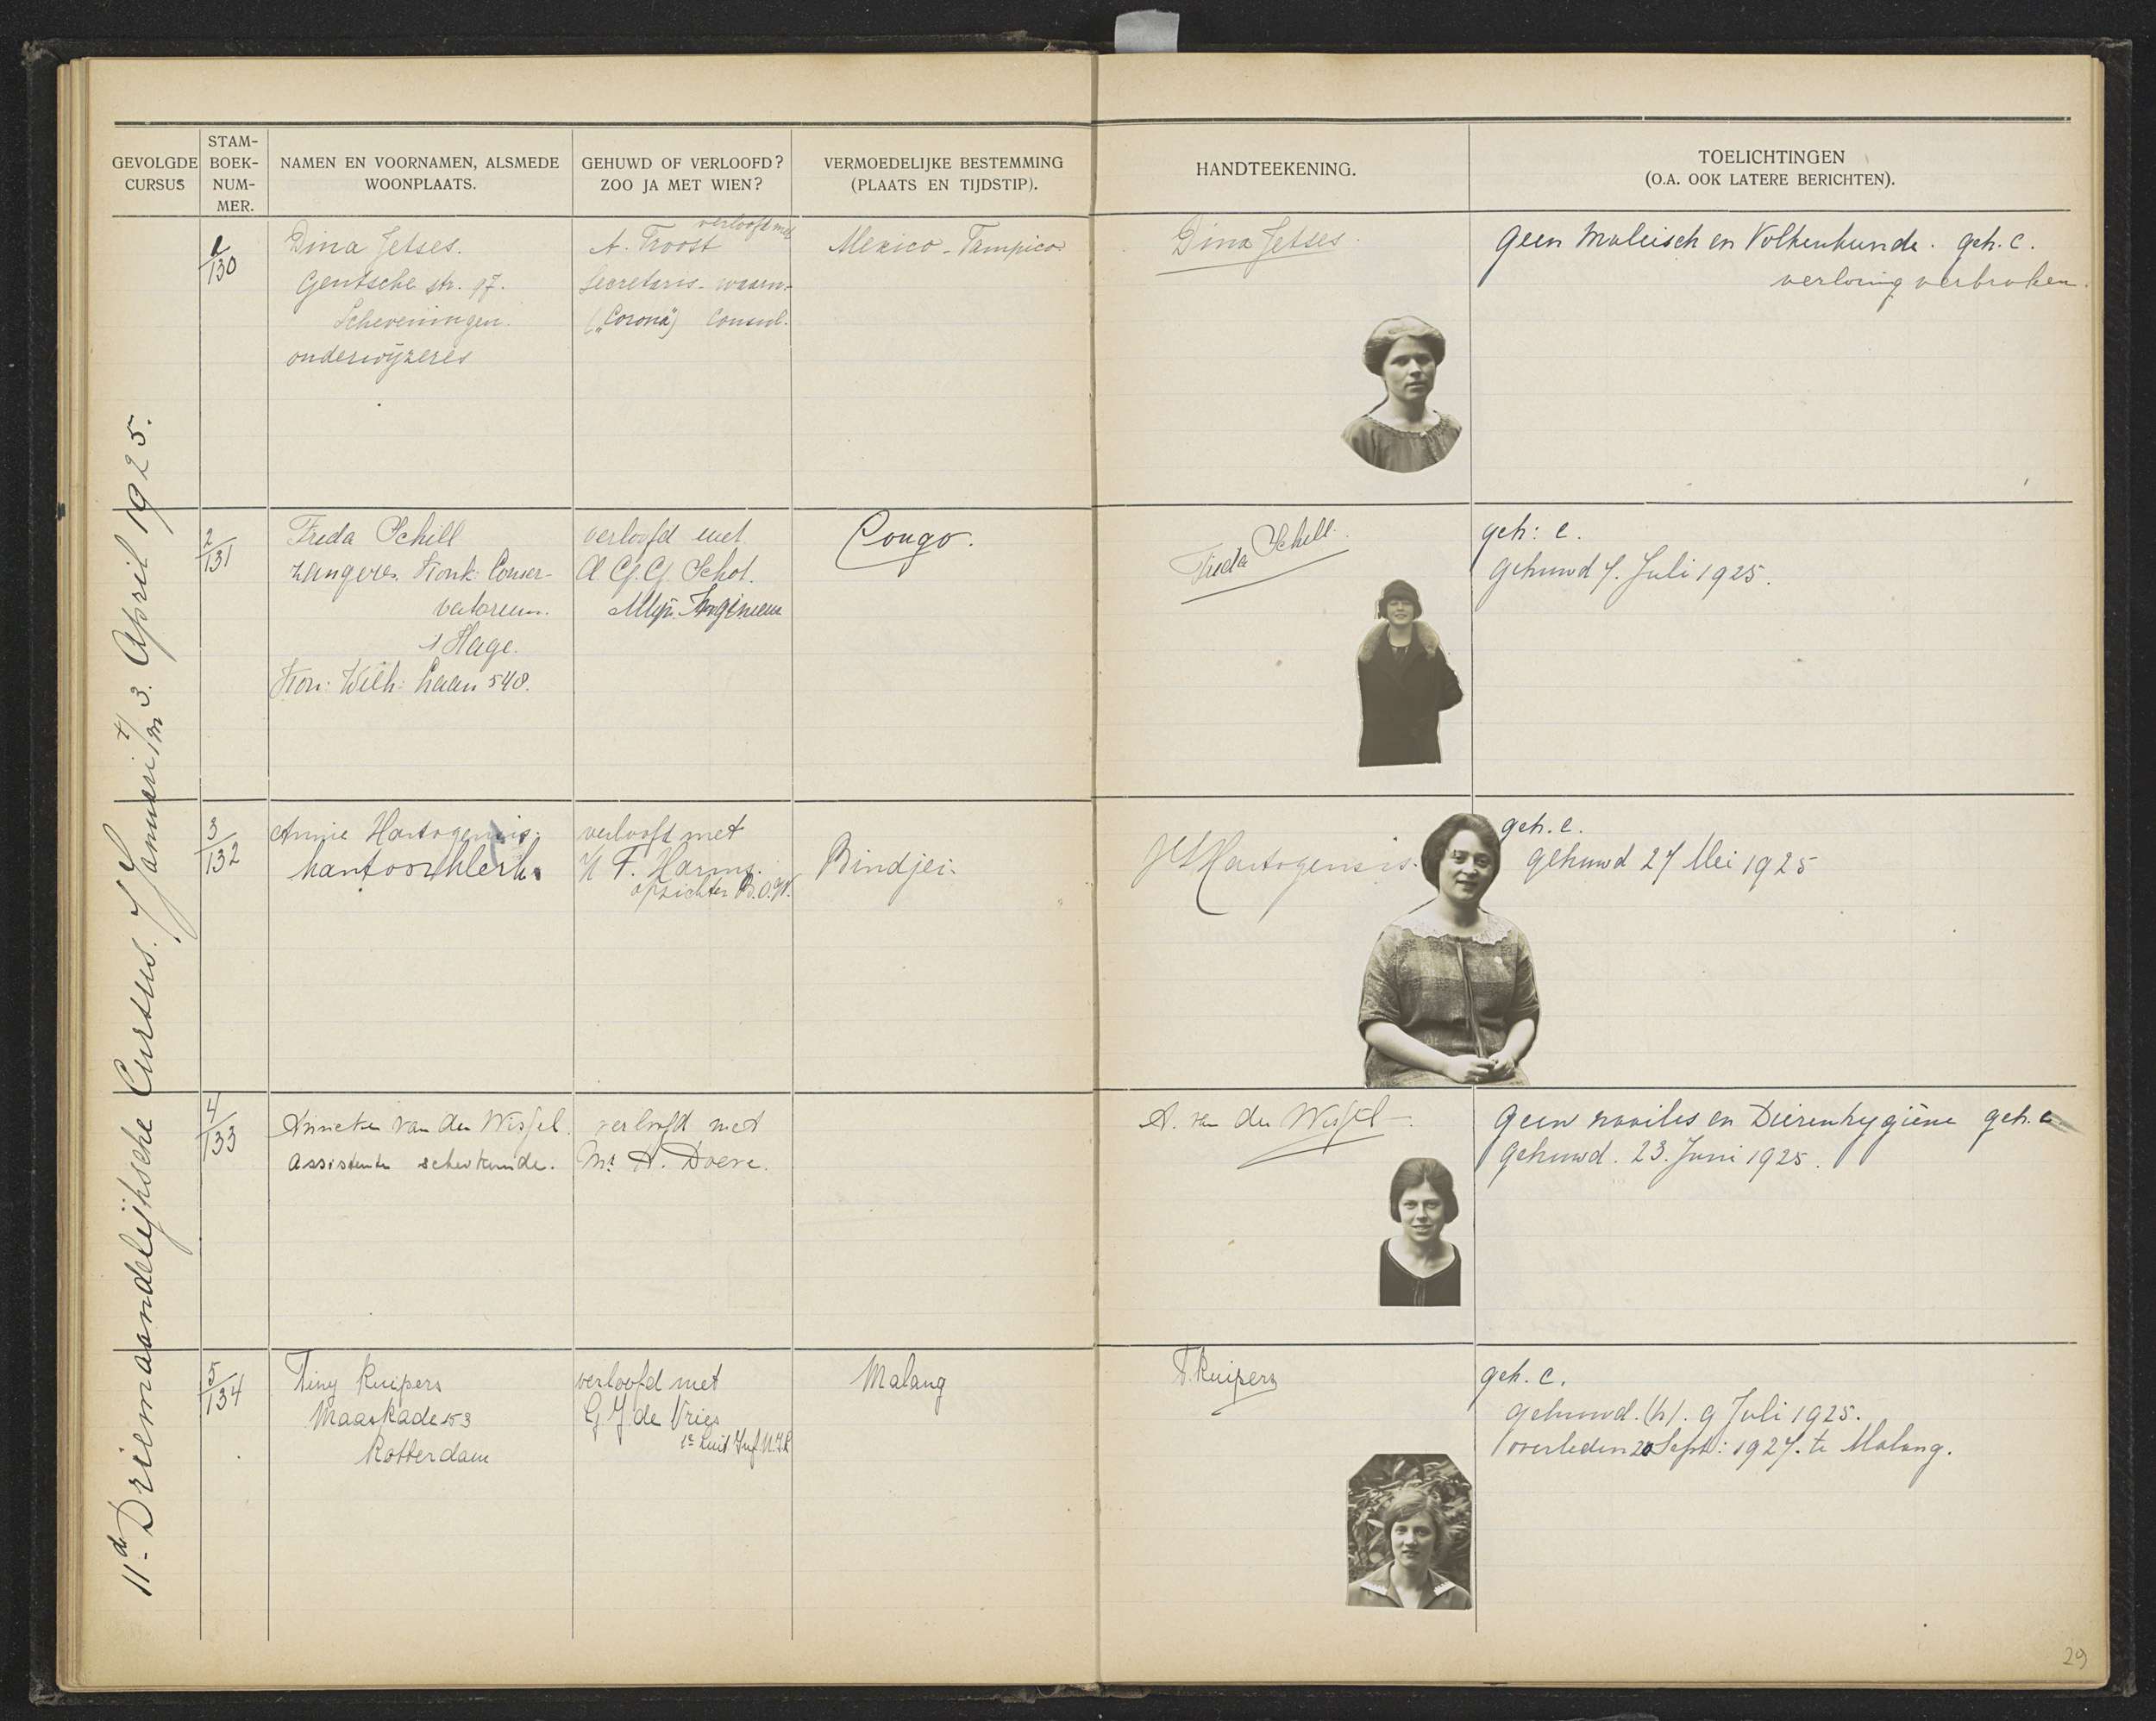 GEVOLGDE CURSUS
STAM-BOEK-NUM-MER.
NAMEN EN VOORNAMEN, ALSMEDE WOONPLAATS.
GEHUWD OF VERLOOFD? ZOO JA MET WIEN?
VERMOEDELIJKE BESTEMMING (PLAATS EN TIJDSTIP).
HANDTEEKENING.
TOELICHTINGEN (O.A. OOK LATERE BERICHTEN).
11de Driemaandelijksche Cursus. 7 Januari t/m 3. April 1925.
1/130
Dina Jetses.
Gentsche str. 97.
Scheveningen.
onderwijzeres
verlooft met
A. Troost
Secretaris-
("Corona") Consul.
Mexico - Tampico
Dina Jetses.
Geen Maleisch en Volkenkunde. geh. c.
verloving verbroken.
2/131
Frieda Schill
zangeres. Konk: Conser-
vatorium.
's Hage.
Kon: Wilh: Laan 540.
verloofd met
A. G. G. Schot.
Mijn. Ingenieur
Congo.
Frieda Schill.
geh: c.
gehuwd 4. Juli 1925.
3/132
Annie Hartogensis.
kantoorklerk.
verlooft met
H F. Harms.
opzichter B.O.W.
Bindjei.
Hartogensis.
geh. c.
gehuwd 27 Mei 1925
4/133
Anneke van der Wissel.
assistente scheikunde.
verloofd met
Mr. A. Doeve.
A. van der Wissel
Geen novities en Dierenhygiëne geh. c.
gehuwd. 23. Juni 1925.
5/134
Tiny Kuipers
Maaskade 153
Rotterdam
verloofd met
G. J. de Vries
1e Luit Inf. N.I.L
Malang
T. Kuipers
geh. c.
gehuwd. (h). 9 Juli 1925.
overleden 20 Sept: 1927. te Malang.
29